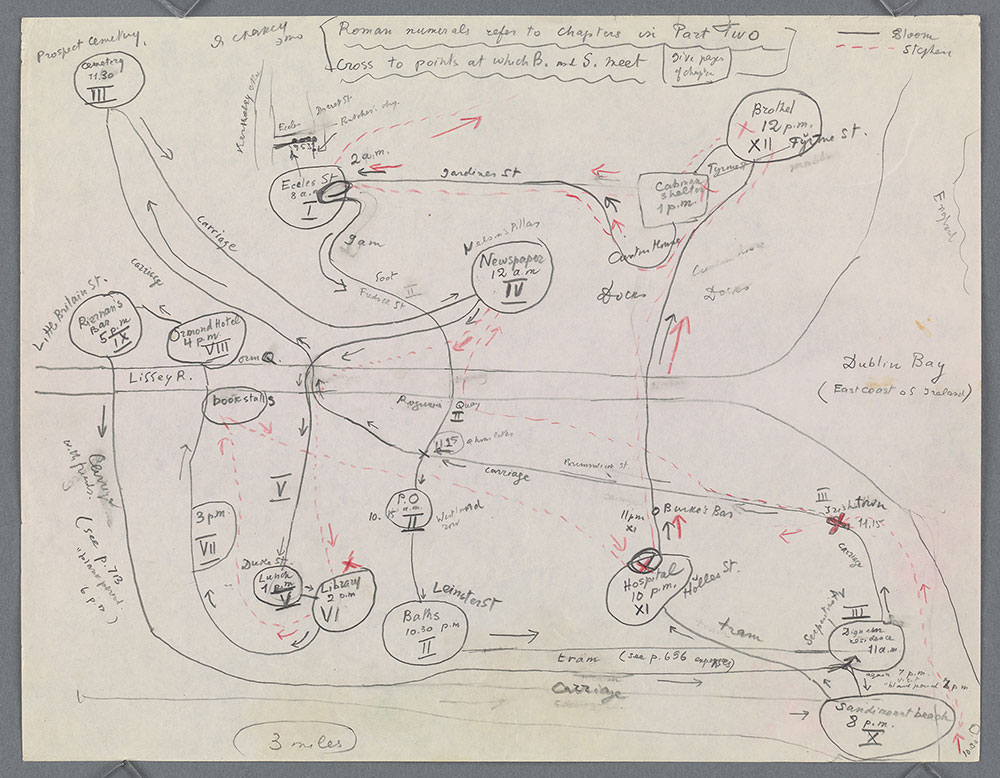 Prospect Cemetery.
Cemetery
11.30
III
Roman numerals refer to chapters in Part Two
Cross to points at which B. and S. meet
Give pages
of chapter
Bloom
Stephen
Eccles
Dorset St.
Brothel
12 p.m.
XII
Tyrone St.
Tyrone St.
2 a.m.
Gardiner St
Eccles St
8 a.m
I
Cabman
shelter
1 p.m.
Custom House
Custom House
England
9 am
foot
Nelson's Pillar
Newspaper
12 a m
IV
carriage
carriage
Docks
Docks
Little Britain St.
Kiernan's
Bar
5 p.m
IX
Ormond Hotel
4 p.m
VIII
Orm Q.
Liffey R.
bookstalls
Quay
II
Dublin Bay
(East coast of Ireland)
11.15
carriage
Brunswick St.
V
P.O
10.15 a.m.
II
Westland
row
3 p.m.
VII
11 pm
XI
Burke's Bar
III
Irishtown
11.15
carriage
with friends.
(see p. 713
"blank period"
6 p.m)
Duke St.
Lunch
1 p.m
V
Library
2 p.m
VI
Leinster St
Baths
10.30 p.m
II
Hospital
10 p.m.
XI
Holles St.
tram
Serpentine Av
III
Dignam
residence
11 a.m
tram (see p. 696 expenses)
carriage
again 7 p.m.
Sandimount beach
8 p.m.
X
3 miles